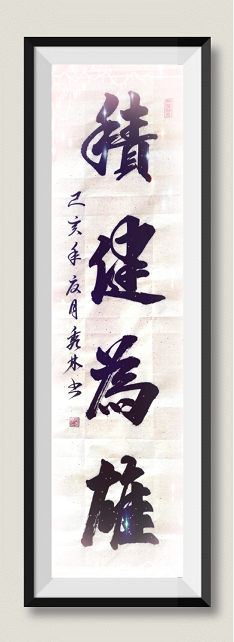 積健為雄
己亥年夏月秀林书